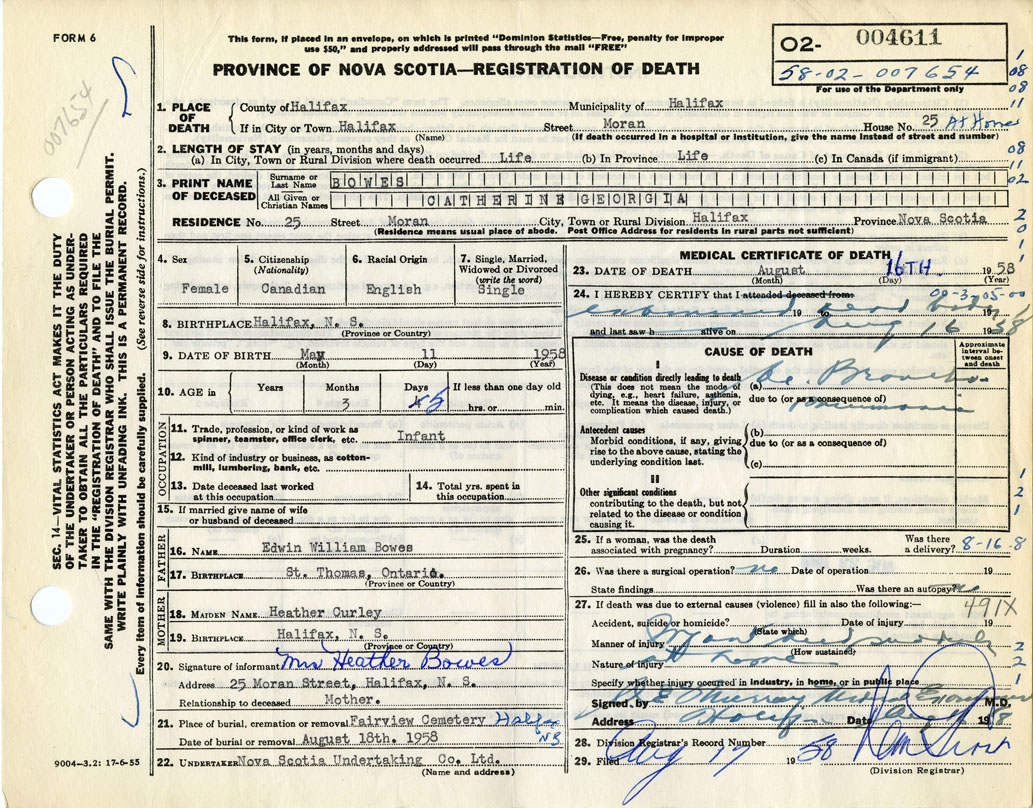 FORM 6
This form, if placed in an envelope, on which is printed "Dominion Statistics—Free, penalty for improper
use $50," and properly addressed will pass through the mail "FREE"
PROVINCE OF NOVA SCOTIA—REGISTRATION OF DEATH
O2- 004611
58-02-007654
For use of the Department only
007654
1. PLACE OF DEATH
County of Halifax Municipality of Halifax
If in City or Town Halifax Street Moran House No. 25 At Home
(Name) (If death occurred in a hospital or institution, give the name instead of street and number)
2. LENGTH OF STAY (in years, months and days)
(a) In City, Town or Rural Division where death occurred Life (b) In Province Life (c) In Canada (if immigrant)
3. PRINT NAME OF DECEASED
Surname or Last Name BOWES
All Given or Christian Names CATHERINE GEORGIA
RESIDENCE No. 25 Street Moran City, Town or Rural Division Halifax Province Nova Scotia
(Residence means usual place of abode. Post Office Address for residents in rural parts not sufficient)
4. Sex
Female
5. Citizenship
(Nationality)
Canadian
6. Racial Origin
English
7. Single, Married,
Widowed or Divorced
(write the word)
Single
8. BIRTHPLACE Halifax, N. S.
(Province or Country)
9. DATE OF BIRTH May 11 1958
(Month) (Day) (Year)
10. AGE in Years Months Days If less than one day old
3 5 hrs. or min.
OCCUPATION
11. Trade, profession, or kind of work as
spinner, teamster, office clerk, etc. Infant
12. Kind of industry or business, as cotton-
mill, lumbering, bank, etc.
13. Date deceased last worked
at this occupation
14. Total yrs. spent in
this occupation
15. If married give name of wife
or husband of deceased
FATHER
16. NAME Edwin William Bowes
17. BIRTHPLACE St. Thomas, Ontario.
(Province or Country)
MOTHER
18. MAIDEN NAME Heather Curley
19. BIRTHPLACE Halifax, N. S.
(Province or Country)
20. Signature of informant Mrs Heather Bowes
Address 25 Moran Street, Halifax, N. S.
Relationship to deceased Mother.
21. Place of burial, cremation or removal Fairview Cemetery Halifax NS
Date of burial or removal August 18th. 1958
22. UNDERTAKER Nova Scotia Undertaking Co. Ltd.
(Name and address)
MEDICAL CERTIFICATE OF DEATH
23. DATE OF DEATH August 16TH. 1958
(Month) (Day) (Year)
00-3-05-00
24. I HEREBY CERTIFY that I attended deceased from
examined dead body
19 to 19
and last saw h alive on Aug 16 1958
CAUSE OF DEATH
Approximate
interval be-
tween onset
and death
I
Disease or condition directly leading to death
(This does not mean the mode of
dying, e.g., heart failure, asthenia,
etc. It means the disease, injury, or
complication which caused death.)
(a) Ac. Broncho
due to (or as a consequence of)
pneumonia
Antecedent causes
Morbid conditions, if any, giving
rise to the above cause, stating the
underlying condition last.
(b)
due to (or as a consequence of)
(c)
II
Other significant conditions
contributing to the death, but not
related to the disease or condition
causing it.
25. If a woman, was the death
associated with pregnancy? Duration weeks. Was there
a delivery? 8-16-8
26. Was there a surgical operation? no Date of operation 19
State findings Was there an autopsy? no
27. If death was due to external causes (violence) fill in also the following:— 491X
Accident, suicide or homicide? Date of injury 19
(State which)
Manner of injury Infant died suddenly
(How sustained)
Nature of injury at home
Specify whether injury occurred in industry, in home, or in public place
Signed by Murray Medical Examiner M.D.
Address Halifax Date 1958
28. Division Registrar's Record Number
29. Filed Aug 17 1958
(Division Registrar)
SEC. 14—VITAL STATISTICS ACT MAKES IT THE DUTY
OF THE UNDERTAKER OR PERSON ACTING AS UNDER-
TAKER TO OBTAIN ALL THE PARTICULARS REQUIRED
IN THE "REGISTRATION OF DEATH" AND TO FILE THE
SAME WITH THE DIVISION REGISTRAR WHO SHALL ISSUE THE BURIAL PERMIT.
WRITE PLAINLY WITH UNFADING INK. THIS IS A PERMANENT RECORD.
Every item of information should be carefully supplied. (See reverse side for instructions.)
9004-3.2: 17-6-55
1
08
08
11
08
11
02
2
0
1
1
2
1
2
2
1